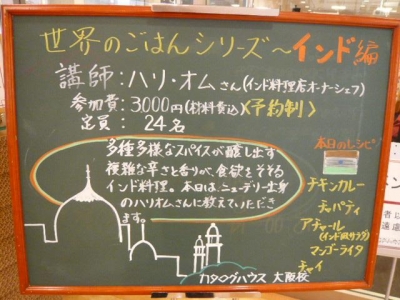 世界のごはんシリーズ～インド編
講師：ハリ・オムさん(インド料理店オーナーシェフ)
参加費：3000円(材料費込)〈予約制〉
定員：24名
多種多様なスパイスが醸し出す
複雑な辛さと香りが、食欲をそそる
インド料理。本日は、ニューデリー出身
のハリオムさんに教えていただき
ます。
本日のレシピ
チキンカレー
チャパティ
アチャール
(インド風サラダ)
マンゴーライタ
チャイ
カタログハウス 大阪校